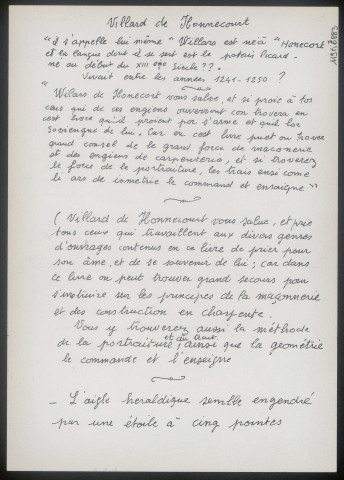 Villard de Honnecourt
"il s'appelle lui même "Villars est né à "Honecort"
et la langue dont il se sert est le patois Picard -
né au début du XIII ème siècle ??.
Vivait entre les années 1241-1250 ?
"Wilars de Honecort vous salue, et si proie à tos
ceus qui de ces engiens ouverront con trovera en
cest livre qu'il proient por s'arme et qu'il lor
soviengne de lui. Car en cest livre puet on trover
grand consel de le grand force de maconerie
et des engiens de carpenterie, et si troverez
le force de le portraiture, les trais ensi come
le ars de iometrie le command et ensaigne"
( Villard de Honnecourt vous salue, et prie
tous ceux qui travaillent aux divers genres
d'ouvrages contenus en ce livre de prier pour
son âme, et de se souvenir de lui ; car dans
ce livre on peut trouver grand secours pour
s'instruire sur les principes de la maçonnerie
et des construction en charpente.
Vous y trouverez aussi la méthode
de la portraiture et du trait, ainsi que la géométrie
le commande et l'enseigne
- L'aigle heraldique semble engendré
par une étoile à cinq pointes